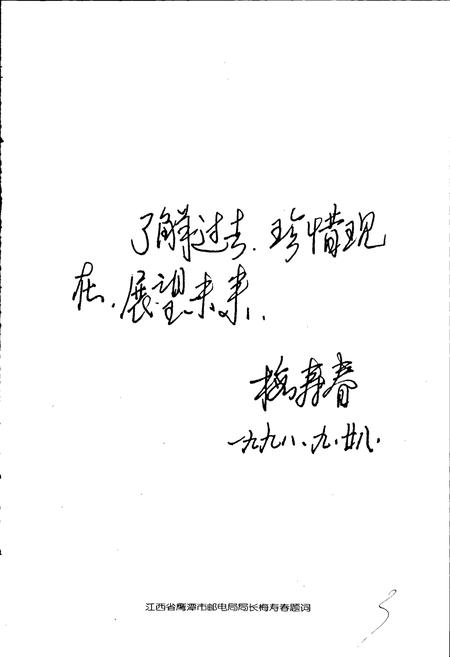 了解过去、珍惜现
在、展望未来。
梅寿春
一九九八.九.廿八.
江西省鹰潭市邮电局局长梅寿春题词